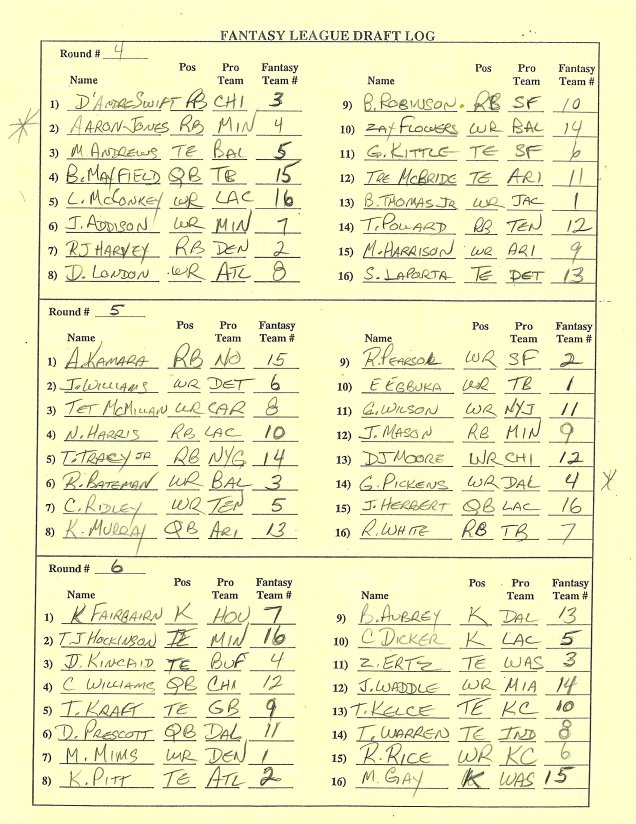 FANTASY LEAGUE DRAFT LOG
Round # 4
Name Pos Pro Team Fantasy Team #
1) D'ANDRE SWIFT RB CHI 3
2) AARON JONES RB MIN 4
3) M ANDREWS TE BAL 5
4) B. MAYFIELD QB TB 15
5) L. McCONKEY WR LAC 16
6) J. ADDISON WR MIN 7
7) RJ HARVEY RB DEN 2
8) D. LONDON WR ATL 8
Name Pos Pro Team Fantasy Team #
9) B. ROBINSON RB SF 10
10) ZAY FLOWERS WR BAL 14
11) G. KITTLE TE SF 6
12) TRE McBRIDE TE ARI 11
13) B. THOMAS JR WR JAC 1
14) T. POLLARD RB TEN 12
15) M. HARRISON WR ARI 9
16) S. LAPORTA TE DET 13
Round # 5
Name Pos Pro Team Fantasy Team #
1) A. KAMARA RB NO 15
2) J. WILLIAMS WR DET 6
3) TET McMILLAN WR CAR 8
4) N. HARRIS RB LAC 10
5) T. TRACY JR RB NYG 14
6) R. BATEMAN WR BAL 3
7) C. RIDLEY WR TEN 5
8) K. MURRAY QB ARI 13
Name Pos Pro Team Fantasy Team #
9) R. PEARSOL WR SF 2
10) E EGBUKA WR TB 1
11) G. WILSON WR NYJ 11
12) J. MASON RB MIN 9
13) DJ MOORE WR CHI 12
14) G. PICKENS WR DAL 4
15) J. HERBERT QB LAC 16
16) R. WHITE RB TB 7
Round # 6
Name Pos Pro Team Fantasy Team #
1) K FAIRBAIRN K HOU 7
2) T J HOCKINSON TE MIN 16
3) D. KINCAID TE BUF 4
4) C WILLIAMS QB CHI 12
5) T. KRAFT TE GB 9
6) D. PRESCOTT QB DAL 11
7) M. MIMS WR DEN 1
8) K. PITT TE ATL 2
Name Pos Pro Team Fantasy Team #
9) B. AUBREY K DAL 13
10) C DICKER K LAC 5
11) Z. ERTZ TE WAS 3
12) J. WADDLE WR MIA 14
13) T. KELCE TE KC 10
14) T. WARREN TE IND 8
15) R. RICE WR KC 6
16) M. GAY K WAS 15